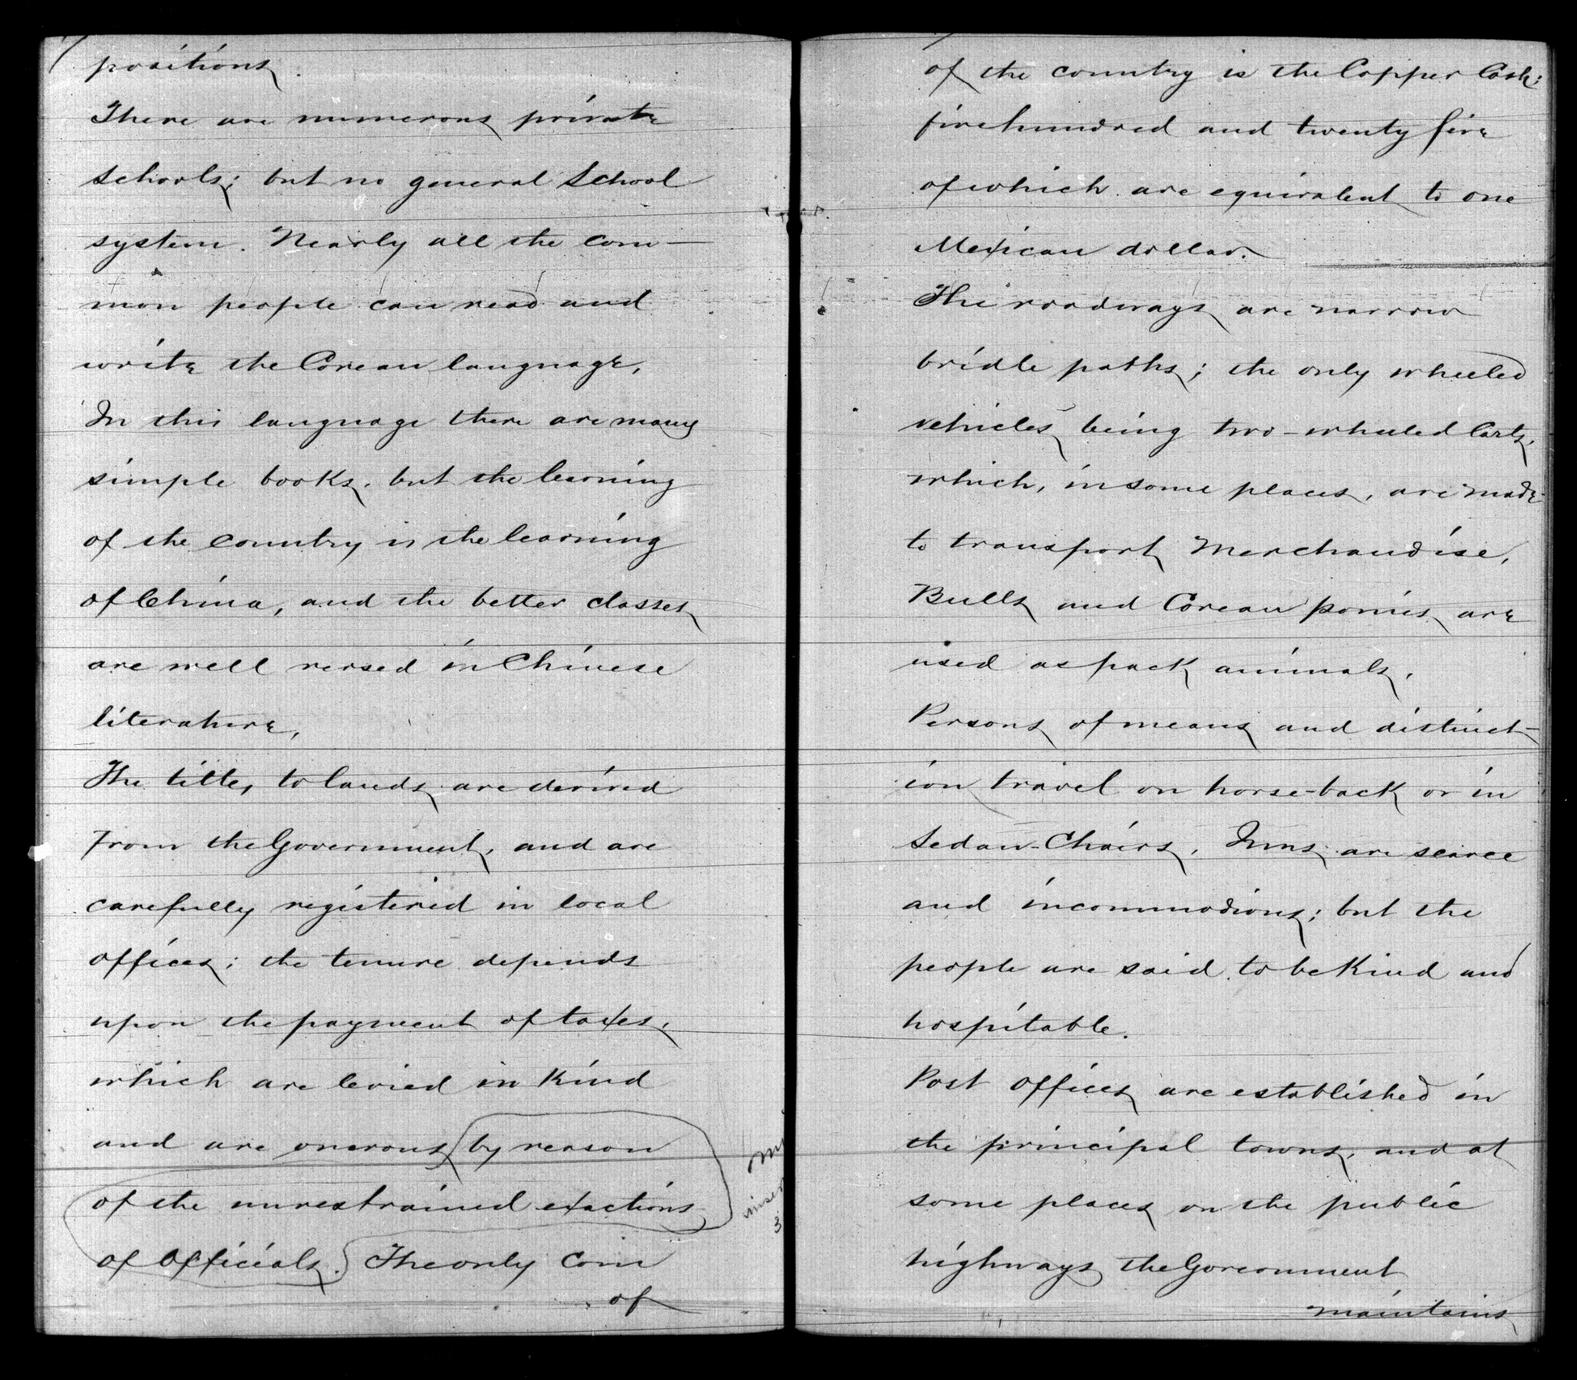 positions.
There are numerous private
schools; but no general School
system. Nearly all the com-
mon people can read and
write the Corean language.
In this language there are many
simple books, but the learning
of the country is the learning
of China, and the better classes
are well versed in Chinese
literature.
The titles to lands are derived
from the Government, and are
carefully registered in local
offices; the tenure depends
upon the payment of taxes,
which are levied in kind
and are onerous by reason
of the unrestrained exactions
of officials. The only coin
of
of the country is the Copper Cash;
five hundred and twenty five
of which are equivalent to one
Mexican dollar.
The roadways are narrow
bridle paths; the only wheeled
vehicles being two-wheeled Carts,
which, in some places, are made
to transport Merchandise,
Bulls and Corean ponies are
used as pack animals.
Persons of means and distinct-
ion travel on horse-back or in
Sedan-Chairs. Inns are scarce
and incommodious; but the
people are said to be kind and
hospitable.
Post offices are established in
the principal towns, and at
some places on the public
highways the Government
maintains